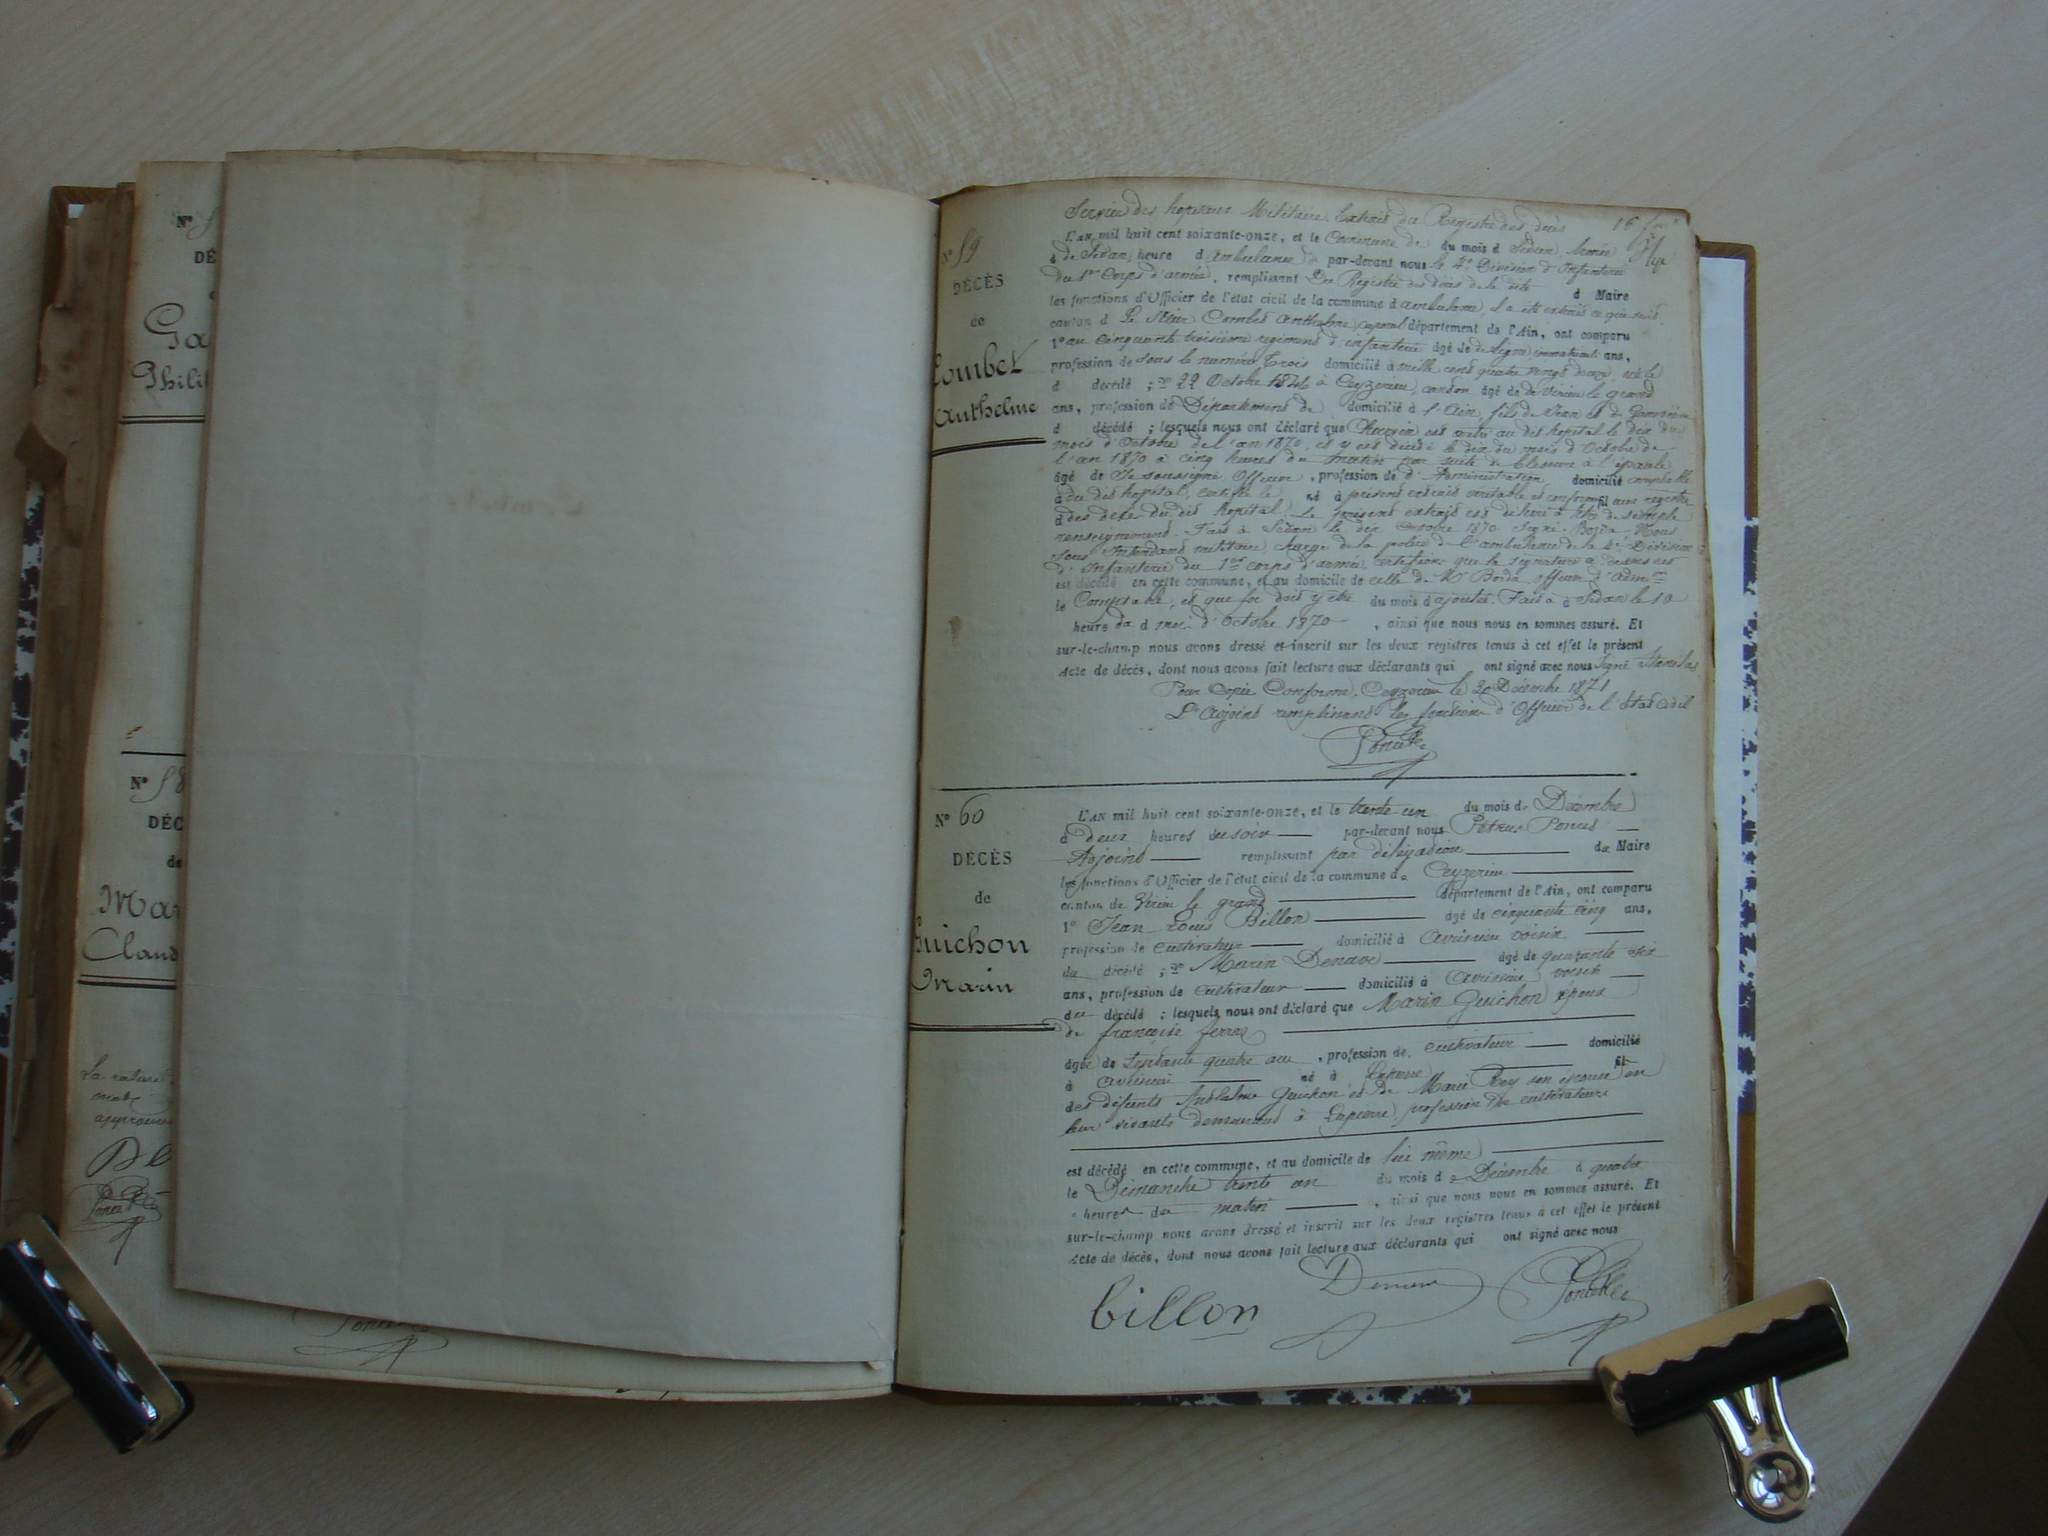 Nº
DÉ
Ga
Phili
Nº 58
DÉC
de
Mar
Claud
La rature
mots
approuvé
Nº 59
DÉCÈS
de
Combet
Anthelme
Service des hopitaux Militaires Extrait du Registre des décès 16
L'AN mil huit cent soixante-onze, et le Commune de du mois d Sedan, Armée
à de Sedan, heure d ambulance par-devant nous la 4e Division d'Infanterie
du 1er Corps d'armée, remplissant Du Registre des décès de la dite d Maire
les fonctions d'Officier de l'état civil de la commune d ambulance, il a été extrait ce qui suit.
canton d Le Sieur Combet Anthelme, caporal département de l'Ain, ont comparu
1º au cinquante troisième régiment d'infanterie âgé de de ligne, immatriculé ans,
profession de sous le numéro trois domicilié à mille cent quatre vingt douze, né le
d décédé ; 2º 22 Octobre à Ceyzerieu, canton âgé de de Virieu le grand
ans, profession de Département de domicilié à l'Ain, fils de Jean et de
d décédé ; lesquels nous ont déclaré que est entré au dit hopital le dix du
mois d'Octobre de l'an 1870, et y est décédé le dix du mois d'Octobre de
l'an 1870 à cinq heures du matin par suite de blessure à l'épaule
âgé de Je soussigné Officier , profession de d'Administration domicilié comptable
à du dit hopital, certifie le né à présent extrait véritable et conforme fil aux registres
d des décès du dit hopital. Le présent extrait est délivré à titre de simple
renseignement. Fait à Sedan le dix Octobre 1870. Signé: Borda. Nous
sous Intendant militaire chargé de la police de l'ambulance de la 4e Division
d'Infanterie du 1er corps d'armée, certifions que la signature ci-dessus est
est décédé en cette commune, et au domicile de celle de Mr Borda officier d'Adm.on
le Comptable, et que foi doit y être du mois d ajoutée. Fait à à Sedan le 10
heure du d mois d'Octobre 1870 , ainsi que nous nous en sommes assuré. Et
sur-le-champ nous avons dressé et inscrit sur les deux registres tenus à cet effet le présent
Acte de décès, dont nous avons fait lecture aux déclarants qui ont signé avec nous Signé Stanislas
Pour Copie Conforme. Ceyzerieu le 20 Décembre 1871
L'Adjoint remplissant les fonctions d'Officier de l'Etat Civil
Nº 60
DÉCÈS
de
Guichon
Marin
L'AN mil huit cent soixante-onze, et le trente un du mois de Décembre
à deux heures du soir par-devant nous Pétrus Poncet
Adjoint remplissant par délégation du Maire
les fonctions d'Officier de l'état civil de la commune de Ceyzerieu
canton de Virieu le grand département de l'Ain, ont comparu
1º Jean Louis Billon âgé de cinquante cinq ans,
profession de cultivateur domicilié à Avrissieu voisin
du décédé ; 2º Marin Denave âgé de quarante six
ans, profession de cultivateur domicilié à Avrissieu voisin
du décédé ; lesquels nous ont déclaré que Marin Guichon époux
de françoise
âgé de Septante quatre ans , profession de cultivateur domicilié
à Avrissieu né à Lapierre fil
des défunts Anthelme Guichon et de Marie Rey son épouse en
leur vivants demeurant à Lapierre, profession de cultivateurs
est décédé en cette commune, et au domicile de lui même
le Dimanche trente un du mois de Décembre à quatre
heures du matin , ainsi que nous nous en sommes assuré. Et
sur-le-champ nous avons dressé et inscrit sur les deux registres tenus à cet effet le présent
Acte de décès, dont nous avons fait lecture aux déclarants qui ont signé avec nous
billon